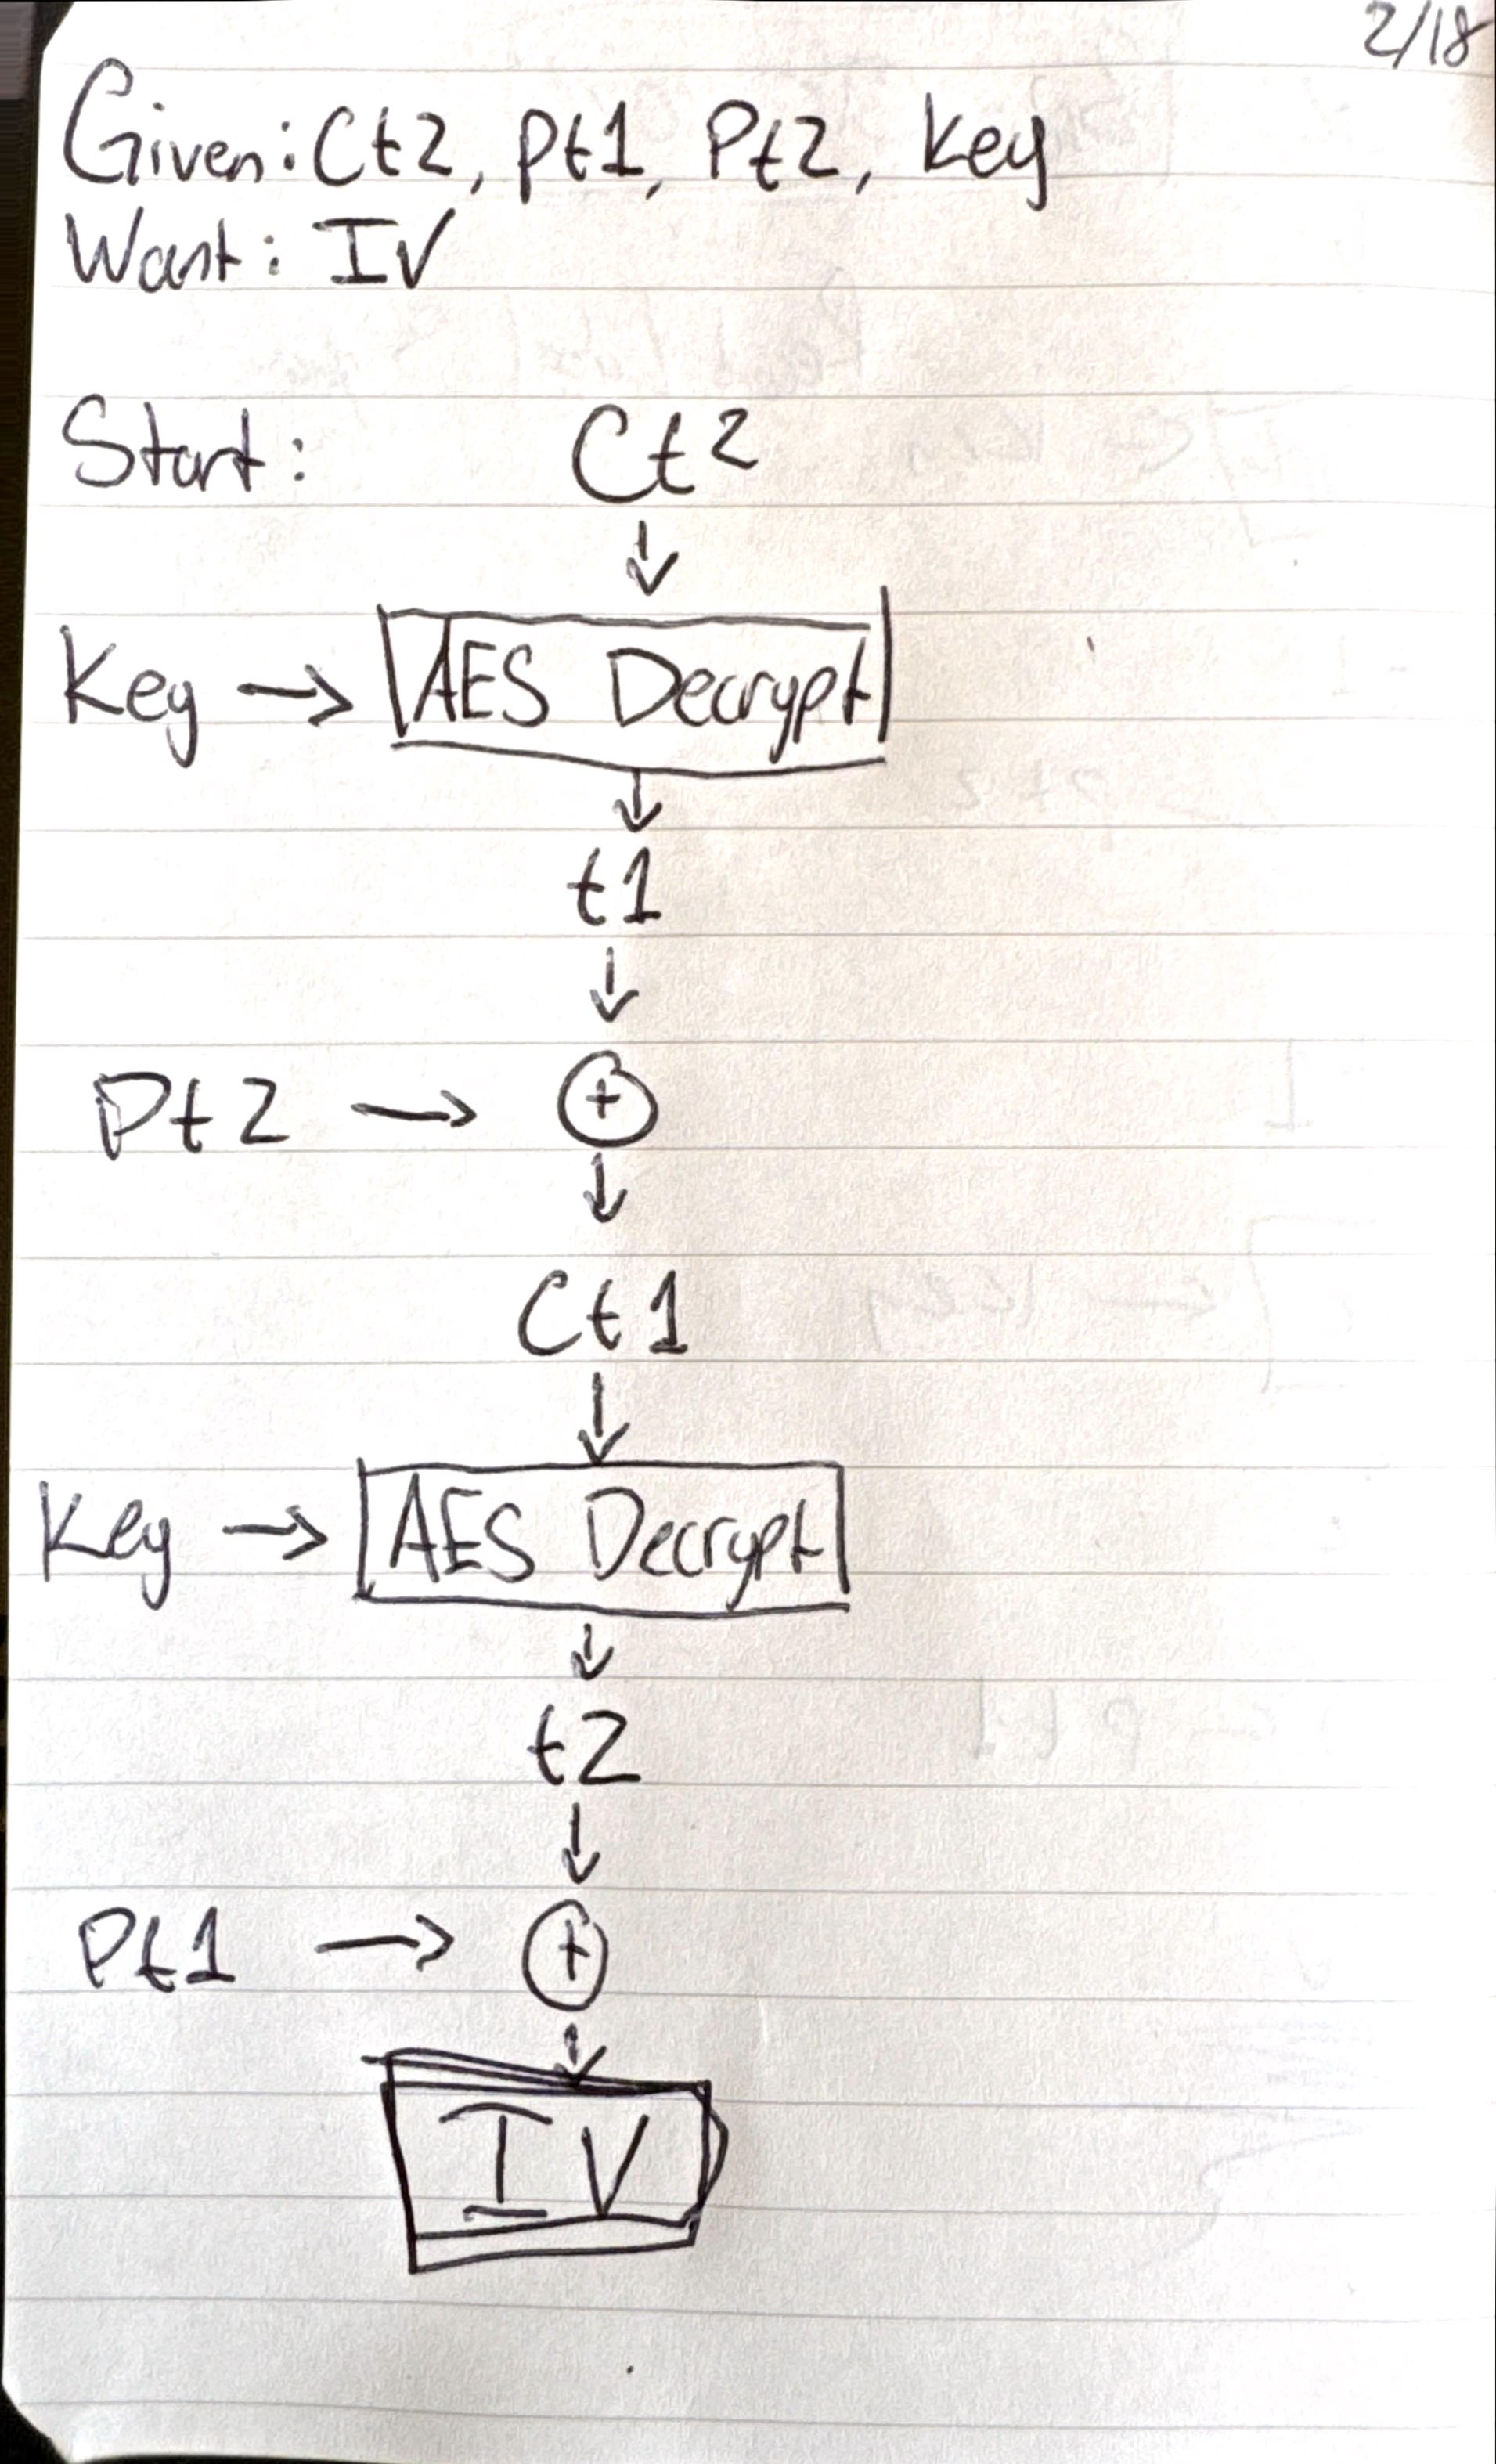 2/18
Given: Ct2, pt1, Pt2, key
Want: IV
Start: Ct2
↓
Key → AES Decrypt
↓
t1
↓
Pt2 → ⊕
↓
Ct1
↓
Key → AES Decrypt
↓
t2
↓
Pt1 → ⊕
↓
IV